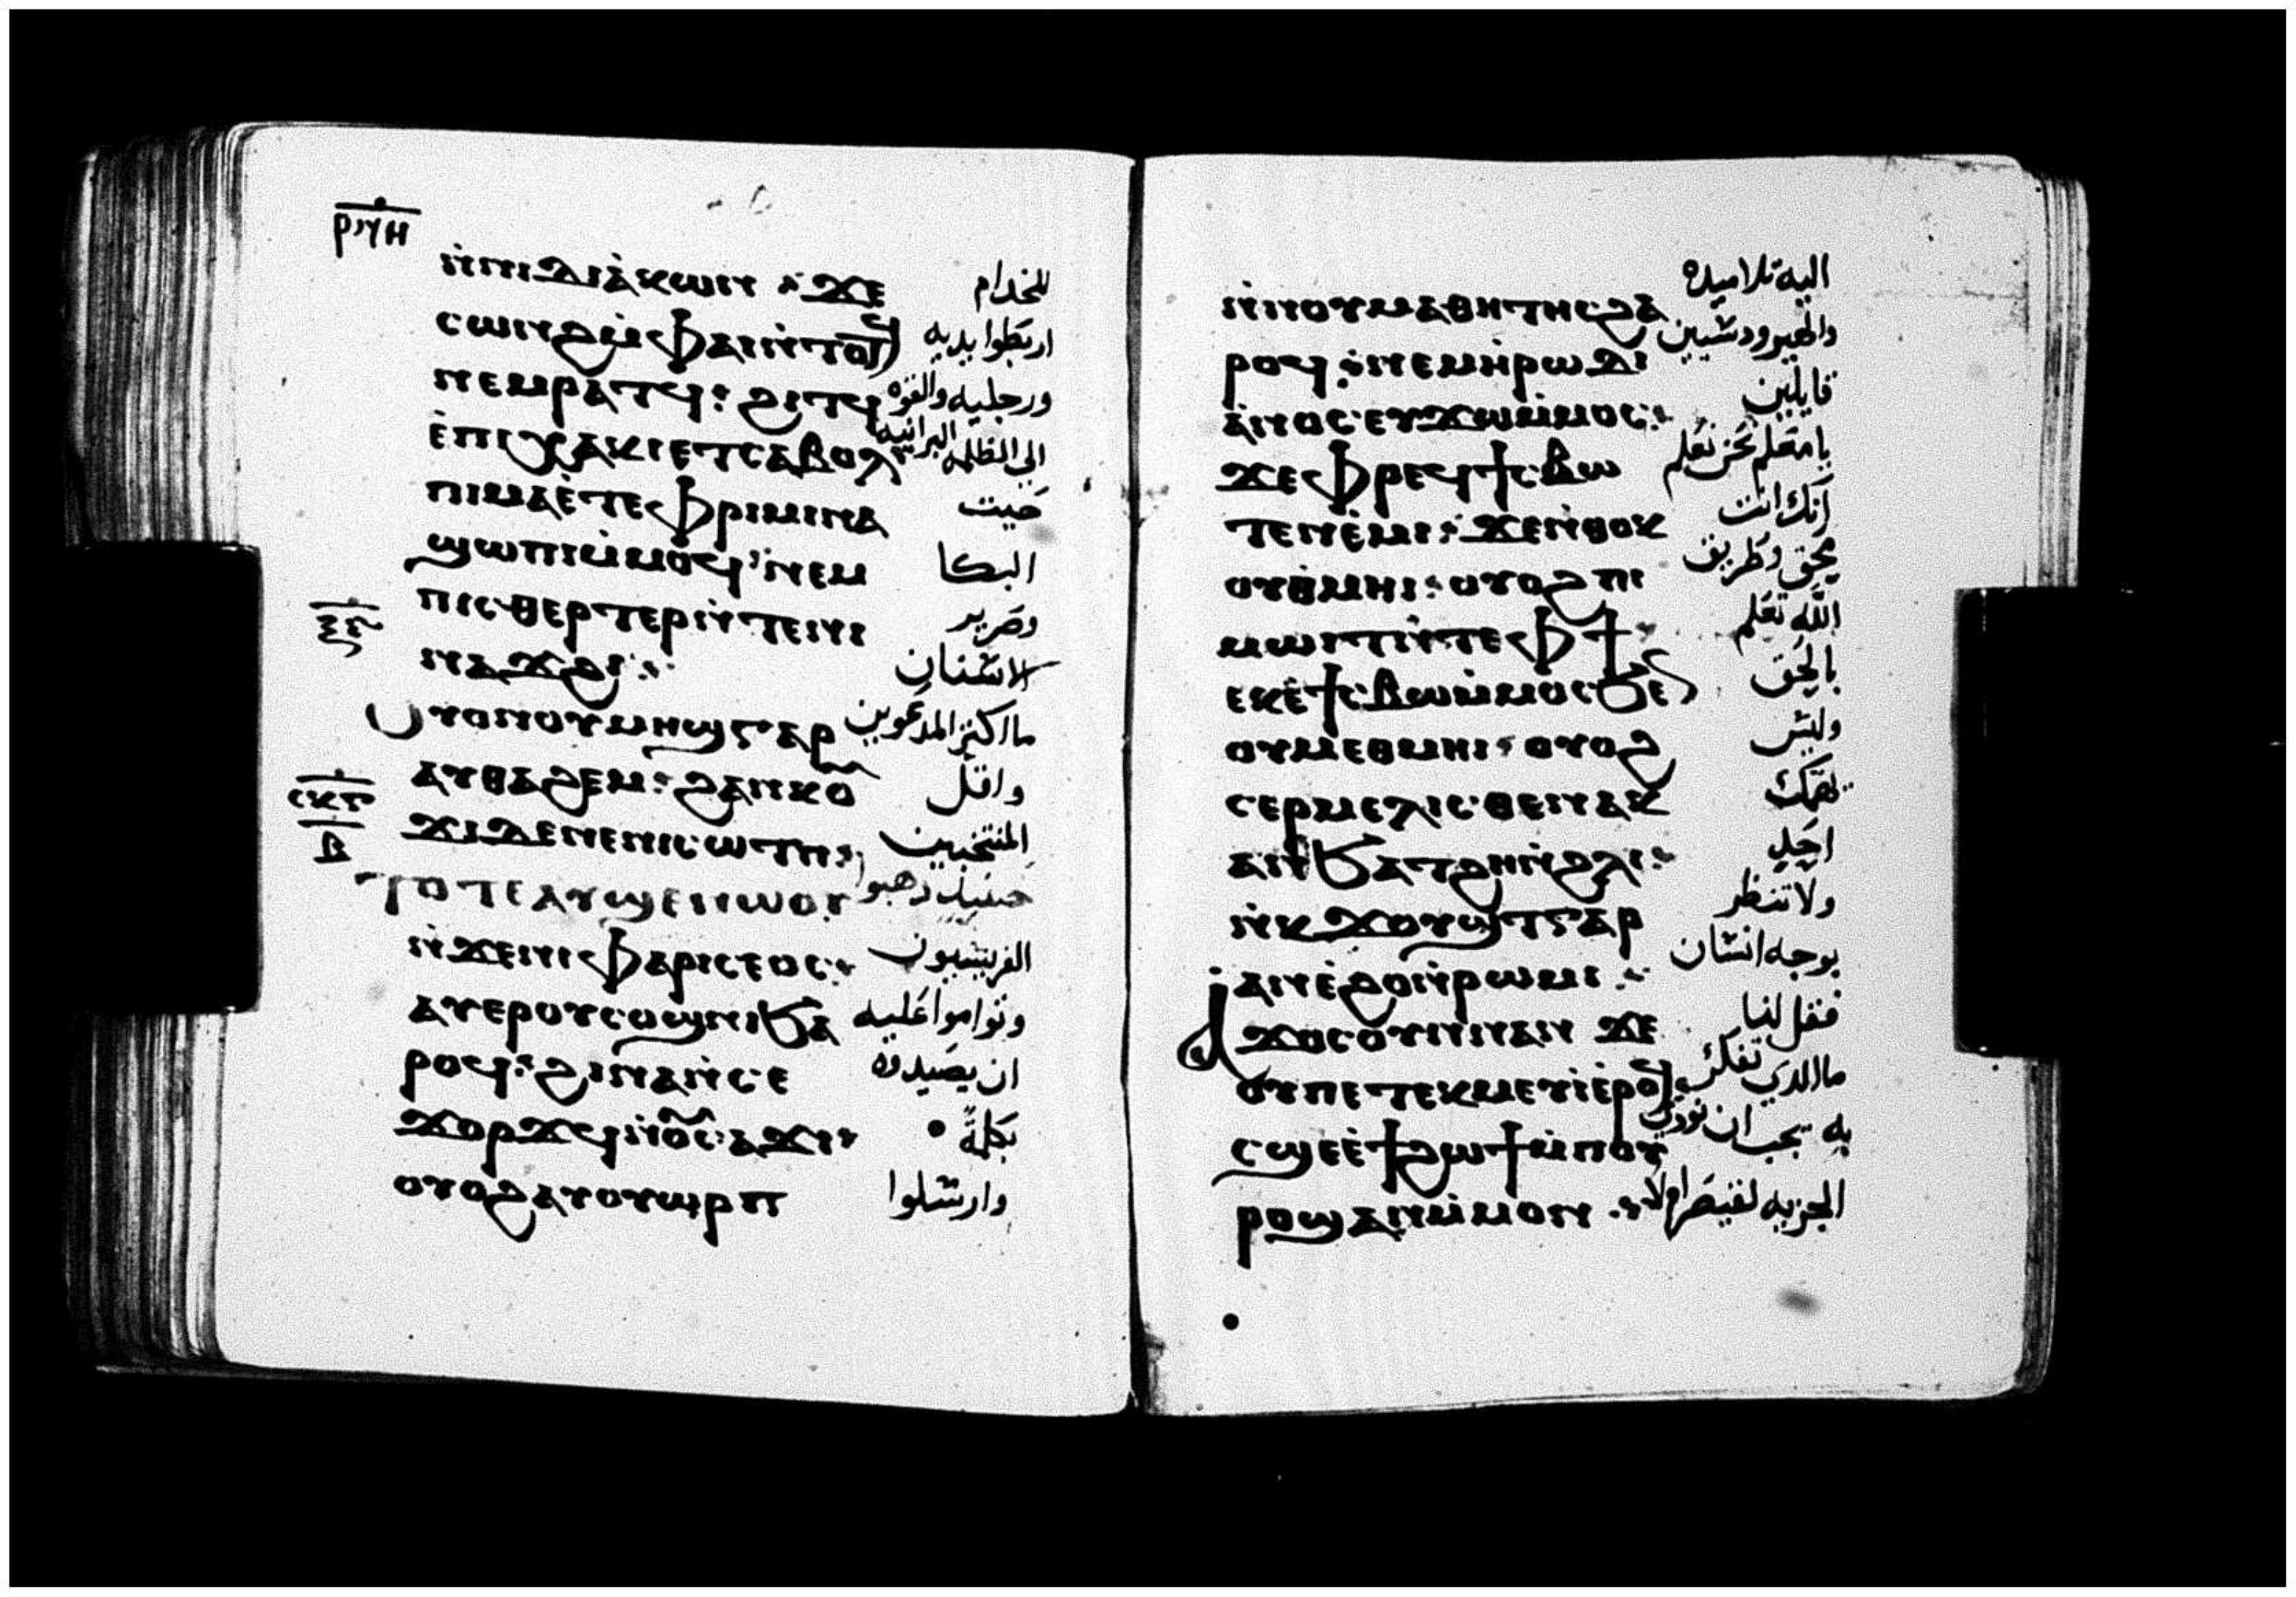 ⲣϥⲏ
ⲛ̀ⲛⲓⲇⲓⲁ̀ⲕⲱⲛ ⲝ ϫⲉ للخدام
ⲥⲱⲛϩⲙ̀ⲫⲁⲓⲛ̀ⲧⲟⲧϥ اربطوا يديه
ⲛⲉⲙⲣⲁⲧϥ: ϩⲓⲧϥ ورجليه والقوه
ⲉ̀ⲡⲓⲭⲁⲕⲓⲉⲧⲥⲁⲃⲟⲗ الى الظلمه البرانيه
ⲡⲓⲙⲁⲉ̀ⲧⲉⲫⲣⲓⲙⲓⲛⲁ حيت
ϣⲱⲡⲓⲙ̀ⲙⲟϥ ⲛⲉⲙ البكا
ⲡⲓⲥⲑⲉⲣⲧⲉⲣⲛ̀ⲧⲉⲛⲓ وصرير
ⲛⲁϫϩⲓ: الاسنان
ⲟⲩⲟⲛⲟⲩⲙⲏϣⲅⲁⲣ ما اكثر المدعوين
ⲁⲩⲑⲁϩⲉⲙ: ϩⲁⲛⲕⲟⲩ واقل
ϫⲓⲇⲉⲛⲉⲛⲓⲥⲱⲧⲡ: المنتخبين
ⲥⲕⲅ
ⲃ
ⲧⲟⲧⲉⲁⲩϣⲉⲛⲱⲟⲩ حينيد دهبوا
ⲛ̀ϫⲉⲛⲓⲫⲁⲣⲓⲥⲉⲟⲥ: الفريسيون
ⲁⲩⲉⲣⲟⲩⲥⲟϭⲛⲓϧⲁ وتوامروا عليه
ⲣⲟϥ: ϩⲓⲛⲁⲛ̀ⲥⲉ ان يصيدوه
ϫⲟⲣϫϥⲛ̀ⲟⲩⲥⲁϫⲓ بكلمة
ⲟⲩⲟϩⲁⲩⲟⲩⲱⲣⲡ وارسلوا
ⲛ̀ⲛⲟⲩⲙⲁⲑⲏⲧⲏⲥϩⲁ اليه تلاميده
ⲣⲟϥ: ⲛⲉⲙⲛ̀ⲣⲱⲇⲓ والهيرودسيين
ⲁ̀ⲛⲟⲥ ⲉⲩϫⲱⲙ̀ⲙⲟⲥ: قايلين
ϫⲉⲫⲣⲉϥϯⲥⲃⲱ يامعلم نحن نعلم
ⲧⲉⲛⲉ̀ⲙⲓ: ϫⲉⲛ̀ⲑⲟⲕ انك انت
ⲟⲩⲑ̀ⲙⲏⲓ: ⲟⲩⲟϩⲡⲓ محق وطريق
ⲙⲱⲓⲧⲛ̀ⲧⲉⲫϯ الله تعلم
ⲉⲕⲉ̀ϯⲥⲃⲱⲙ̀ⲙⲟⲥϧⲉⲛ بالحق
ⲟⲩⲙⲉⲑⲙⲏⲓ: ⲟⲩⲟϩ وليس
ⲥⲉⲣⲙⲉⲗⲓⲥⲑⲉⲛⲁⲕ يهمك
ⲁⲛϧⲁⲧϩⲏⲛ̀ϩⲗⲓ: احد
ⲛ̀ⲕϫⲟⲩϣⲧⲅⲁⲣ ولا تنظر
ⲁⲛⲉ̀ϩⲟⲛ̀ⲣⲱⲙⲓ: بوجه انسان
ⲁϫⲟⲥⲟⲩⲛⲛⲁⲛ ϫⲉ فقل لنا
ⲟⲩⲡⲉⲧⲉⲕⲙⲉⲩⲓ̀ⲉ̀ⲣⲟϥ ما الدي تفكر
ⲥϣⲉⲉ̀ϯϩⲱϯⲙ̀ⲡⲟⲩ به يجب ان نودي
ⲣⲟϣⲁⲛⲙ̀ⲙⲟⲛ: الجزيه لقيصر ام لا